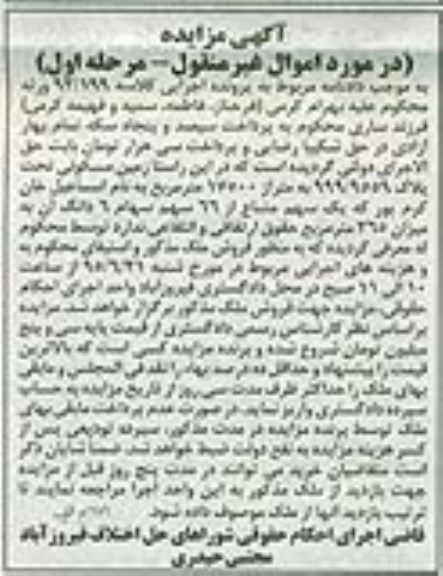 آگهی مزایده
(در مورد اموال غیرمنقول – مرحله اول)
به موجب دادنامه مربوط به پرونده اجرایی کلاسه ۹۴/۱۹۹ ورثه
محکوم علیه بهرام کرمی (فرهناز، فاطمه، سعید و فهیمه کرمی)
فرزند ساری محکوم به پرداخت سیصد و پنجاه سکه تمام بهار
آزادی در حق شکیبا رضایی و پرداخت سی هزار تومان بابت حق
الاجرای دولتی گردیده است که در این راستا زمین مسکونی تحت
پلاک ۹۹۹/۹۵۵۹ به متراژ ۲۳۵۰۰ مترمربع به نام اسماعیل خان
کرم پور که یک سهم مشاع از ۶۶ سهم سهام ۶ دانگ آن به
میزان ۳۶۵ مترمربع حقوق ارتفاقی و انتفاعی ندارد توسط محکوم
له معرفی گردیده که به منظور فروش ملک مذکور و استیفای محکوم به
و هزینه های اجرایی مربوط در مورخ شنبه ۹۵/۶/۲۶ از ساعت
۱۰ الی ۱۱ صبح در محل دادگستری فیروزآباد واحد اجرای احکام
حقوقی، مزایده جهت فروش ملک مذکور برگزار خواهد شد. مزایده
براساس نظر کارشناس رسمی دادگستری از قیمت پایه سی و پنج
میلیون تومان شروع شده و برنده مزایده کسی است که بالاترین
قیمت را پیشنهاد و حداقل ده درصد بها را نقد فی المجلس و مابقی
بهای ملک را حداکثر ظرف مدت سی روز از تاریخ مزایده به حساب
سپرده دادگستری واریز نماید. در صورت عدم پرداخت مابقی بهای
ملک توسط برنده مزایده در مدت مذکور، سپرده تودیعی پس از
کسر هزینه مزایده به نفع دولت ضبط خواهد شد. ضمنا شایان ذکر
است متقاضیان خرید می توانند در مدت پنج روز قبل از مزایده
جهت بازدید از ملک مذکور به این واحد اجرا مراجعه نمایند تا
ترتیب بازدید آنها از ملک موصوف داده شود.
قاضی اجرای احکام حقوقی شوراهای حل اختلاف فیروزآباد
مجتبی حیدری